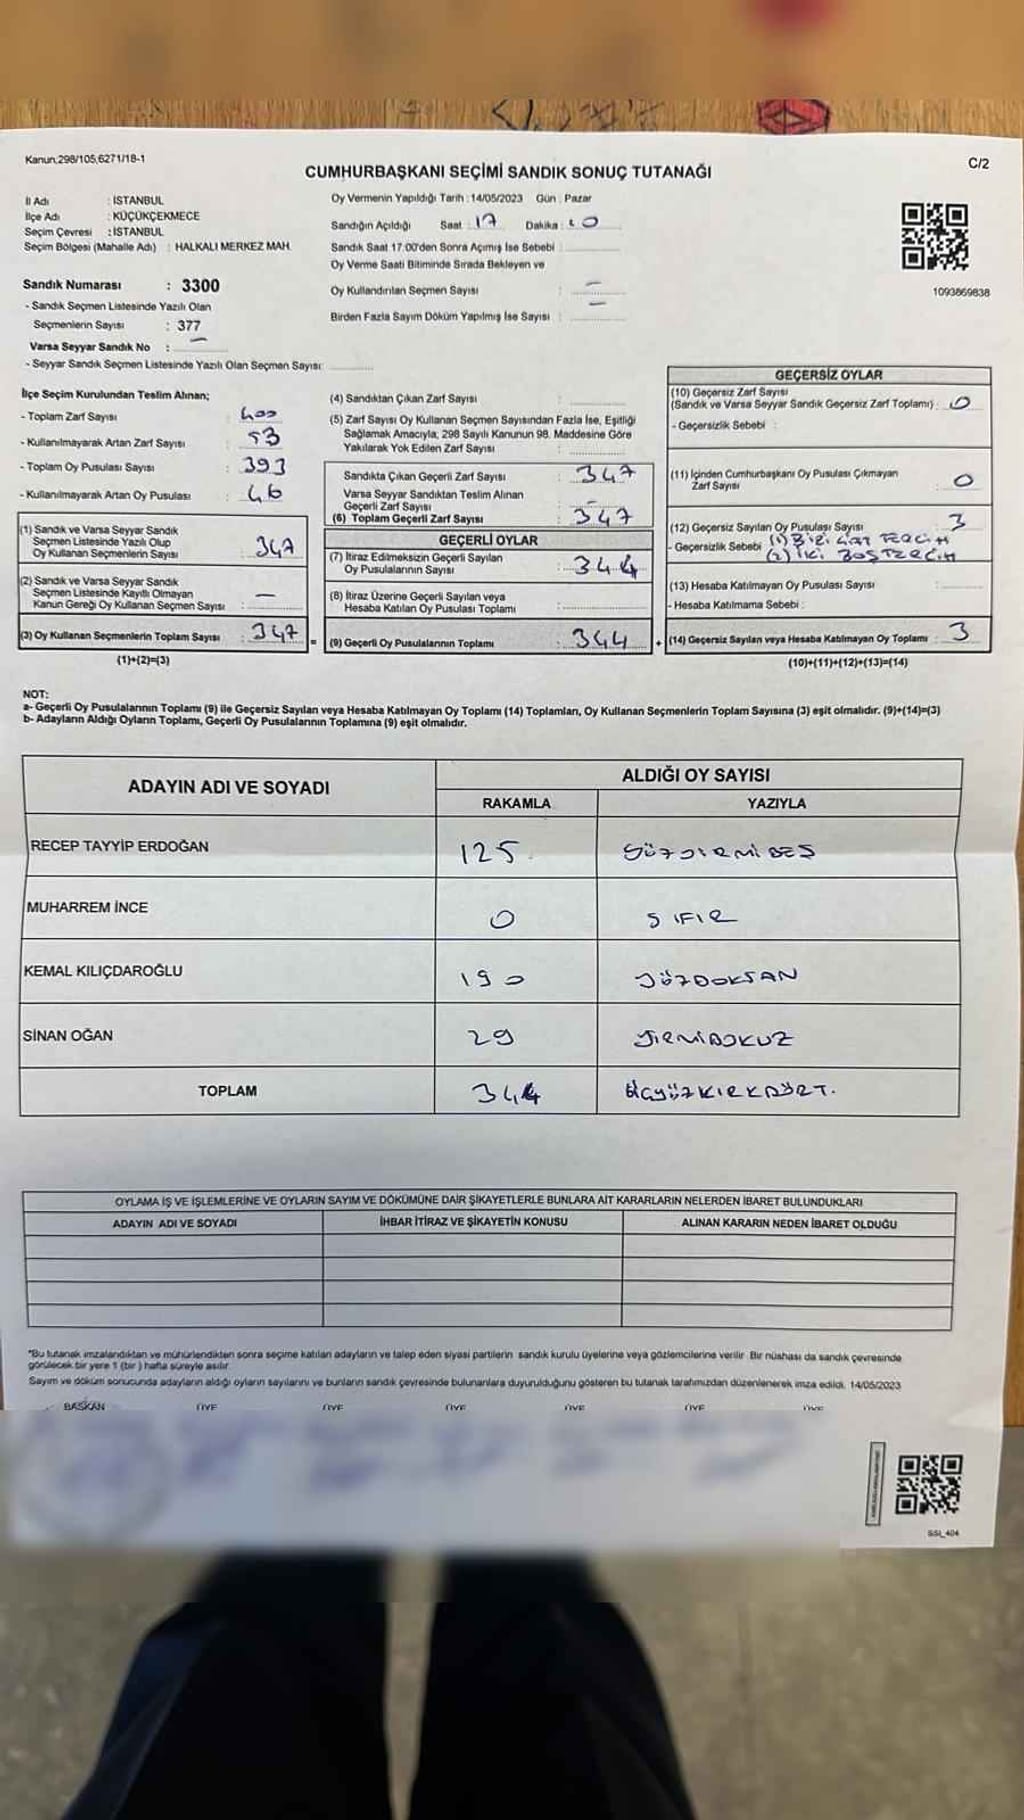 Kanun;298/105,6271/18-1
C/2
CUMHURBAŞKANI SEÇİMİ SANDIK SONUÇ TUTANAĞI
İl Adı : İSTANBUL
İlçe Adı : KÜÇÜKÇEKMECE
Seçim Çevresi : İSTANBUL
Seçim Bölgesi (Mahalle Adı) : HALKALI MERKEZ MAH.
Sandık Numarası : 3300
- Sandık Seçmen Listesinde Yazılı Olan
Seçmenlerin Sayısı : 377
Varsa Seyyar Sandık No : —
- Seyyar Sandık Seçmen Listesinde Yazılı Olan Seçmen Sayısı:
Oy Vermenin Yapıldığı Tarih : 14/05/2023 Gün : Pazar
Sandığın Açıldığı Saat : 17 Dakika :
Sandık Saat 17:00'den Sonra Açımış İse Sebebi :
Oy Verme Saati Bitiminde Sırada Bekleyen ve
Oy Kullandırılan Seçmen Sayısı : —
Birden Fazla Sayım Döküm Yapılmış İse Sayısı : —
1093869838
İlçe Seçim Kurulundan Teslim Alınan;
- Toplam Zarf Sayısı : 400
- Kullanılmayarak Artan Zarf Sayısı : 53
- Toplam Oy Pusulası Sayısı : 393
- Kullanılmayarak Artan Oy Pusulası : 46
(1) Sandık ve Varsa Seyyar Sandık
Seçmen Listesinde Yazılı Olup
Oy Kullanan Seçmenlerin Sayısı : 347
(2) Sandık ve Varsa Seyyar Sandık
Seçmen Listesinde Kayıtlı Olmayan
Kanun Gereği Oy Kullanan Seçmen Sayısı : —
(3) Oy Kullanan Seçmenlerin Toplam Sayısı : 347 =
(1)+(2)=(3)
(4) Sandıktan Çıkan Zarf Sayısı :
(5) Zarf Sayısı Oy Kullanan Seçmen Sayısından Fazla İse, Eşitliği
Sağlamak Amacıyla, 298 Sayılı Kanunun 98. Maddesine Göre
Yakılarak Yok Edilen Zarf Sayısı :
Sandıkta Çıkan Geçerli Zarf Sayısı : 347
Varsa Seyyar Sandıktan Teslim Alınan
Geçerli Zarf Sayısı : —
(6) Toplam Geçerli Zarf Sayısı : 347
GEÇERLİ OYLAR
(7) İtiraz Edilmeksizin Geçerli Sayılan
Oy Pusulalarının Sayısı : 344
(8) İtiraz Üzerine Geçerli Sayılan veya
Hesaba Katılan Oy Pusulası Toplamı :
(9) Geçerli Oy Pusulalarının Toplamı : 344 +
GEÇERSİZ OYLAR
(10) Geçersiz Zarf Sayısı
(Sandık ve Varsa Seyyar Sandık Geçersiz Zarf Toplamı) : 0
- Geçersizlik Sebebi :
(11) İçinden Cumhurbaşkanı Oy Pusulası Çıkmayan
Zarf Sayısı : 0
(12) Geçersiz Sayılan Oy Pusulası Sayısı : 3
- Geçersizlik Sebebi (1) BİRİ ÇİFT TERCİH
(2) İKİ BOŞ TERCİH
(13) Hesaba Katılmayan Oy Pusulası Sayısı :
- Hesaba Katılmama Sebebi :
(14) Geçersiz Sayılan veya Hesaba Katılmayan Oy Toplamı : 3
(10)+(11)+(12)+(13)=(14)
NOT:
a- Geçerli Oy Pusulalarının Toplamı (9) ile Geçersiz Sayılan veya Hesaba Katılmayan Oy Toplamı (14) Toplamları, Oy Kullanan Seçmenlerin Toplam Sayısına (3) eşit olmalıdır. (9)+(14)=(3)
b- Adayların Aldığı Oyların Toplamı, Geçerli Oy Pusulalarının Toplamına (9) eşit olmalıdır.
ADAYIN ADI VE SOYADI
ALDIĞI OY SAYISI
RAKAMLA YAZIYLA
RECEP TAYYİP ERDOĞAN 125 YÜZYİRMİBEŞ
MUHARREM İNCE 0 SIFIR
KEMAL KILIÇDAROĞLU 190 YÜZDOKSAN
SİNAN OĞAN 29 YİRMİDOKUZ
TOPLAM 344 ÜÇYÜZKIRKDÖRT.
OYLAMA İŞ VE İŞLEMLERİNE VE OYLARIN SAYIM VE DÖKÜMÜNE DAİR ŞİKAYETLERLE BUNLARA AİT KARARLARIN NELERDEN İBARET BULUNDUKLARI
ADAYIN ADI VE SOYADI İHBAR İTİRAZ VE ŞİKAYETİN KONUSU ALINAN KARARIN NEDEN İBARET OLDUĞU
"Bu tutanak imzalandıktan ve mühürlendikten sonra seçime katılan adayların ve talep eden siyasi partilerin sandık kurulu üyelerine veya gözlemcilerine verilir. Bir nüshası da sandık çevresinde
görülecek bir yere 1 (bir) hafta süreyle asılır.
Sayım ve döküm sonucunda adayların aldığı oyların sayılarını ve bunların sandık çevresinde bulunanlara duyurulduğunu gösteren bu tutanak tarafımızdan düzenlenerek imza edildi. 14/05/2023
BAŞKAN ÜYE ÜYE ÜYE ÜYE ÜYE ÜYE
SSI_404